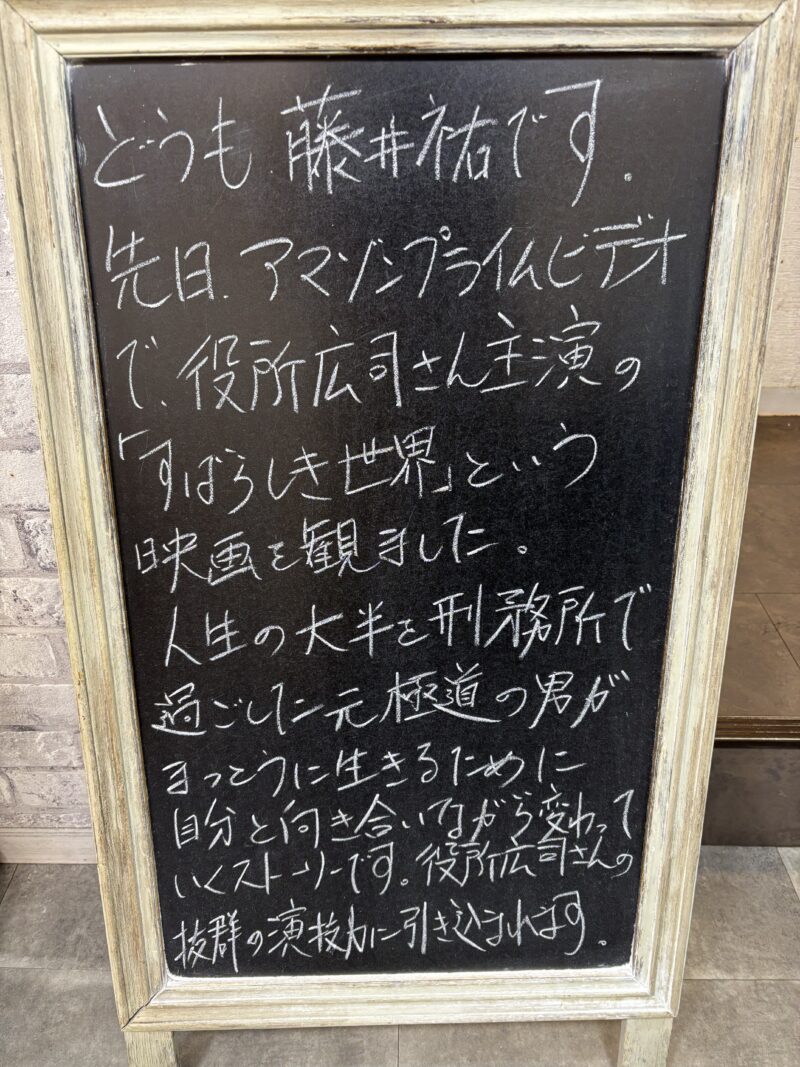 どうも 藤井祐です.
先日. アマゾンプライムビデオ
で、役所広司さん主演の
「すばらしき世界」という
映画を観ました。
人生の大半を刑務所で
過ごした元極道の男が
まっとうに生きるために
自分と向き合いながら変わって
いくストーリーです。役所広司さんの
抜群の演技力に引き込まれます。